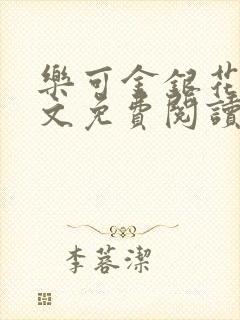 樂可金銀花
文免費閱讀
李蓉潔